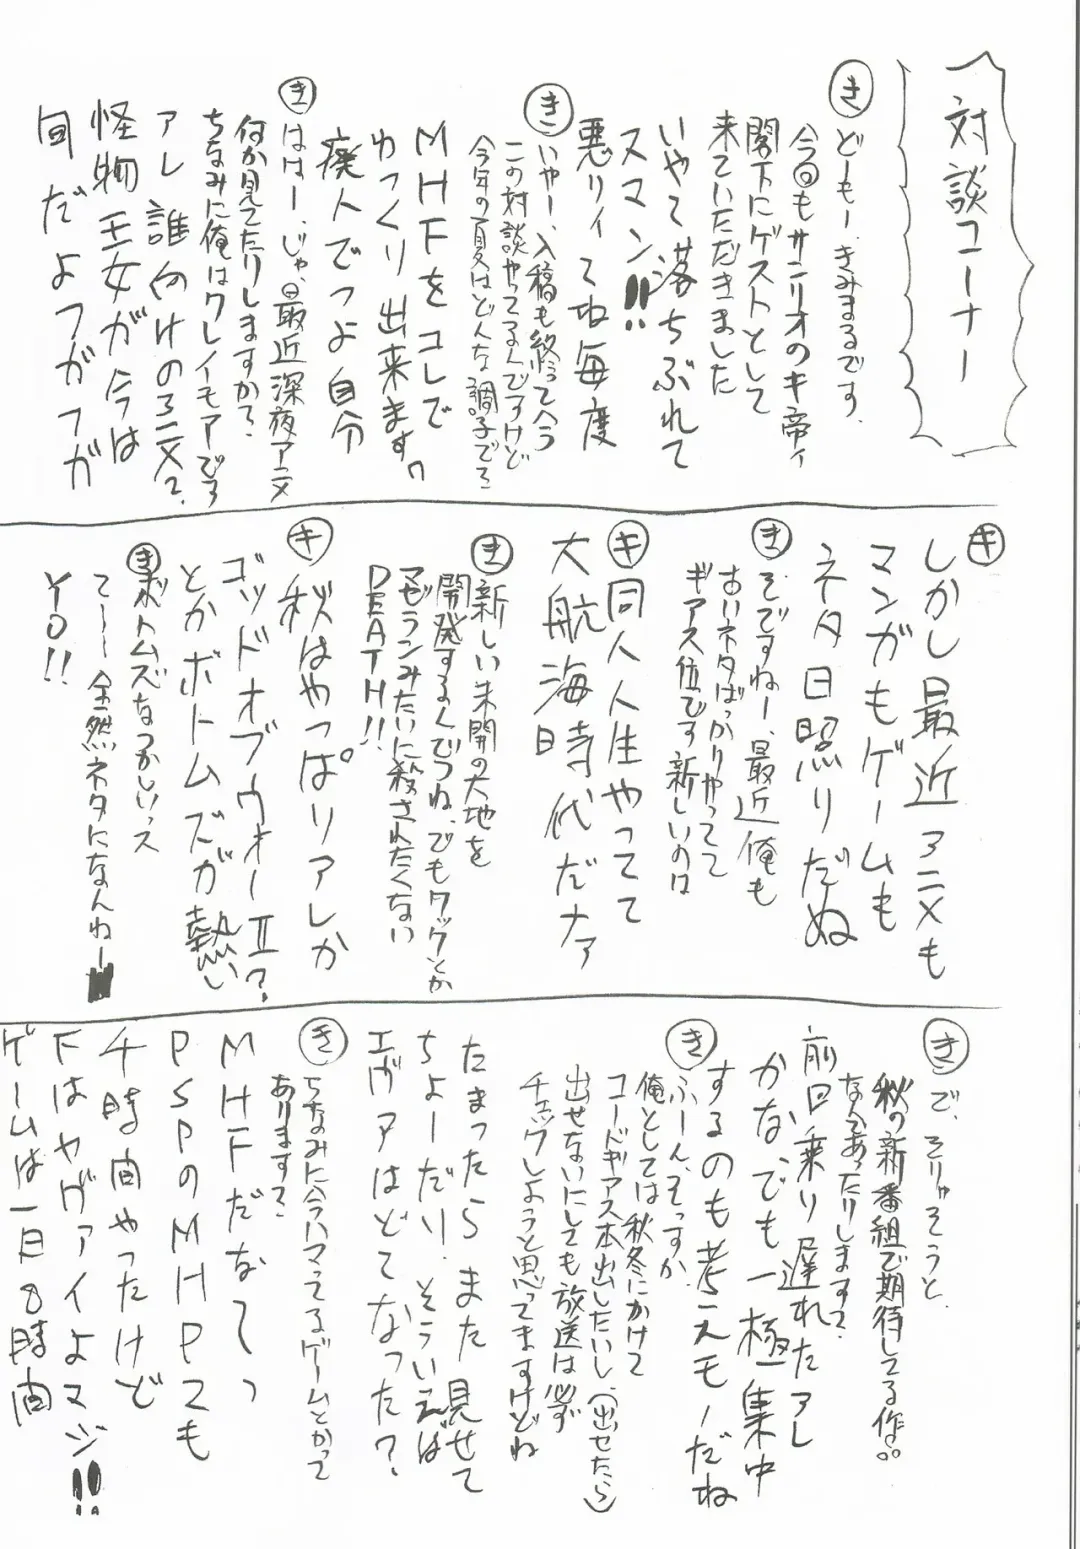 対談コーナー
き どーもー、きみまるです。
今回もサンリオのキ帝ィ
閣下にゲストとして
来ていただきました
いやて落ちぶれて
スマン!!
悪リィてね毎度
き いやー、入稿も終って
この対談やってるんですけど
今年の夏はどんな調子で
MHFをコレで
ゆっくり出来ます。
廃人でつよ自分
き ははー、じゃ、最近深夜アニメ
何か見てたりしますか?
ちなみに俺はクレイモアです
アレ誰向けのアニメ?
怪物王女が今は
面だよフガフガ
キ しかし最近アニメも
マンガもゲームも
ネタ日照りだぬ
き そですねー、最近俺も
古いネタばっかりやってて
ギアス位です新しいのは
キ 同人人生やってて
大航海時代だナァ
き 新しい未開の大地を
開発するんでつね、でもタックとか
マゼランみたいに殺されたくない
DEATH!!
キ 秋はやっぱりアレか
ゴッドオブウォーⅡ?
とかボトムズが熱い
き ボトムズなつかしいっス
て〜〜全然ネタになんねー
YO!!
き で、そりゃそうと、
秋の新番組で期待してる作品
なんてあったりします?
前回乗り遅れたアレ
かな、でも一極集中
するのも考えモノだね
き ふーん、そっすか
俺としては秋冬にかけて
コードギアス本出したいし(出せたら)
出せないにしても放送は必ず
チェックしようと思ってますけどね
たまったらまた見せて
ちょーだい、そういえば
エヴァはどてなった?
き ちなみに今ハマってるゲームとかって
あります?
MHFだなてっ
PSPのMHPても
千時間やったけど
Fはヤヴァイよマジ!!
ゲームは一日8時間